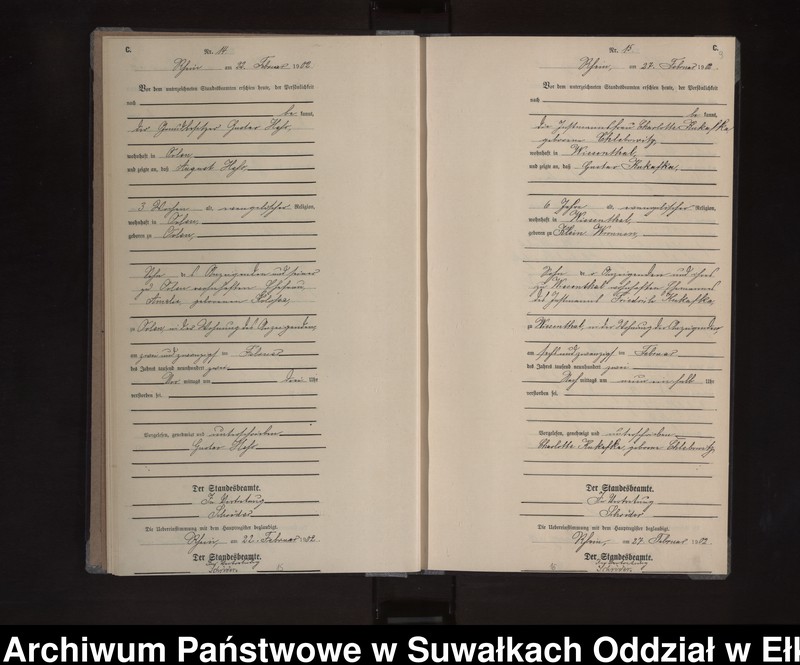 C.
Nr. 14.
Rhein am 22. Februar 1902.
Vor dem unterzeichneten Standesbeamten erschien heute, der Persönlichkeit
nach
be kannt,
der Grundbesitzer Gustav
wohnhaft in
und zeigte an, daß August
3 Wochen a. evangelischer Religion,
wohnhaft in
geboren zu
Sohn des Anzeigenden und seiner
zu wohnhaften Ehefrau
Amalie, geborenen
zu in der Wohnung des Anzeigenden,
am zwei und zwanzigsten Februar
des Jahres tausend neunhundert zwei
Vor mittags um drei Uhr
verstorben sei.
Vorgelesen, genehmigt und unterschrieben
Gustav
Der Standesbeamte.
In Vertretung
Schröder
Die Uebereinstimmung mit dem Hauptregister beglaubigt.
Rhein, am 22. Februar 1902.
Der Standesbeamte.
In Vertretung
Schröder.
C.
Nr. 15.
Rhein, am 27. Februar 1902
Vor dem unterzeichneten Standesbeamten erschien heute, der Persönlichkeit
nach
be kannt,
die Instmannsfrau Charlotte Kukafka
geborene
wohnhaft in Wiesenthal,
und zeigte an, daß Gustav Kukafka,
6 Jahre a. evangelischer Religion,
wohnhaft in Wiesenthal,
geboren zu Klein
Sohn der Anzeigenden und ihres
zu Wiesenthal wohnhaften Ehemannes
des Instmanns Friedrich Kukafka,
zu Wiesenthal, in der Wohnung der Anzeigenden,
am und zwanzigsten Februar
des Jahres tausend neunhundert zwei
Nach mittags um neun ein halb Uhr
verstorben sei.
Vorgelesen, genehmigt und unterschrieben
Charlotte Kukafka, geborene
Der Standesbeamte.
In Vertretung
Schröder
Die Uebereinstimmung mit dem Hauptregister beglaubigt.
Rhein, am 27. Februar 1902.
Der Standesbeamte.
In Vertretung
Schröder.
Archiwum Państwowe w Suwałkach Oddział w Ełk